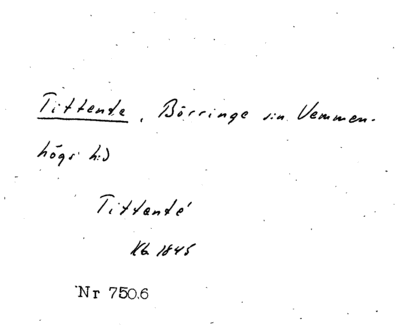 Tittente, Börringe sn. Vemmen-
högs hd
Tittenté
Kb 1845
Nr 750.6